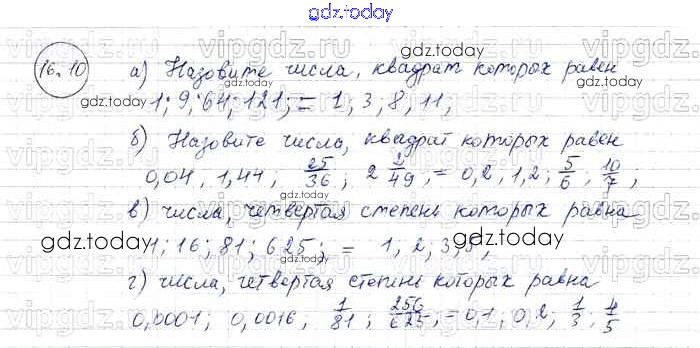 gdz.today
16.10
а) Назовите числа, квадрат которых равен
1; 9; 64; 121; = 1; 3; 8; 11;
б) Назовите числа, квадрат которых равен
0,04, 1,44; 25/36; 2 2/49, = 0,2, 1,2; 5/6; 10/7;
в) числа, четвертая степень которых равна
1; 16; 81; 625; = 1; 2; 3, 5;
г) числа, четвертая степень которых равна
0,0001; 0,0016, 1/81; 256/625; = 0,1; 0,2; 1/3; 4/5